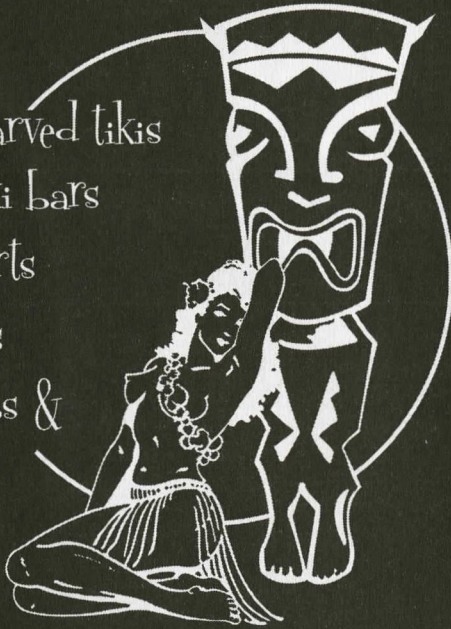 arved tikis
i bars
rts
s
s &